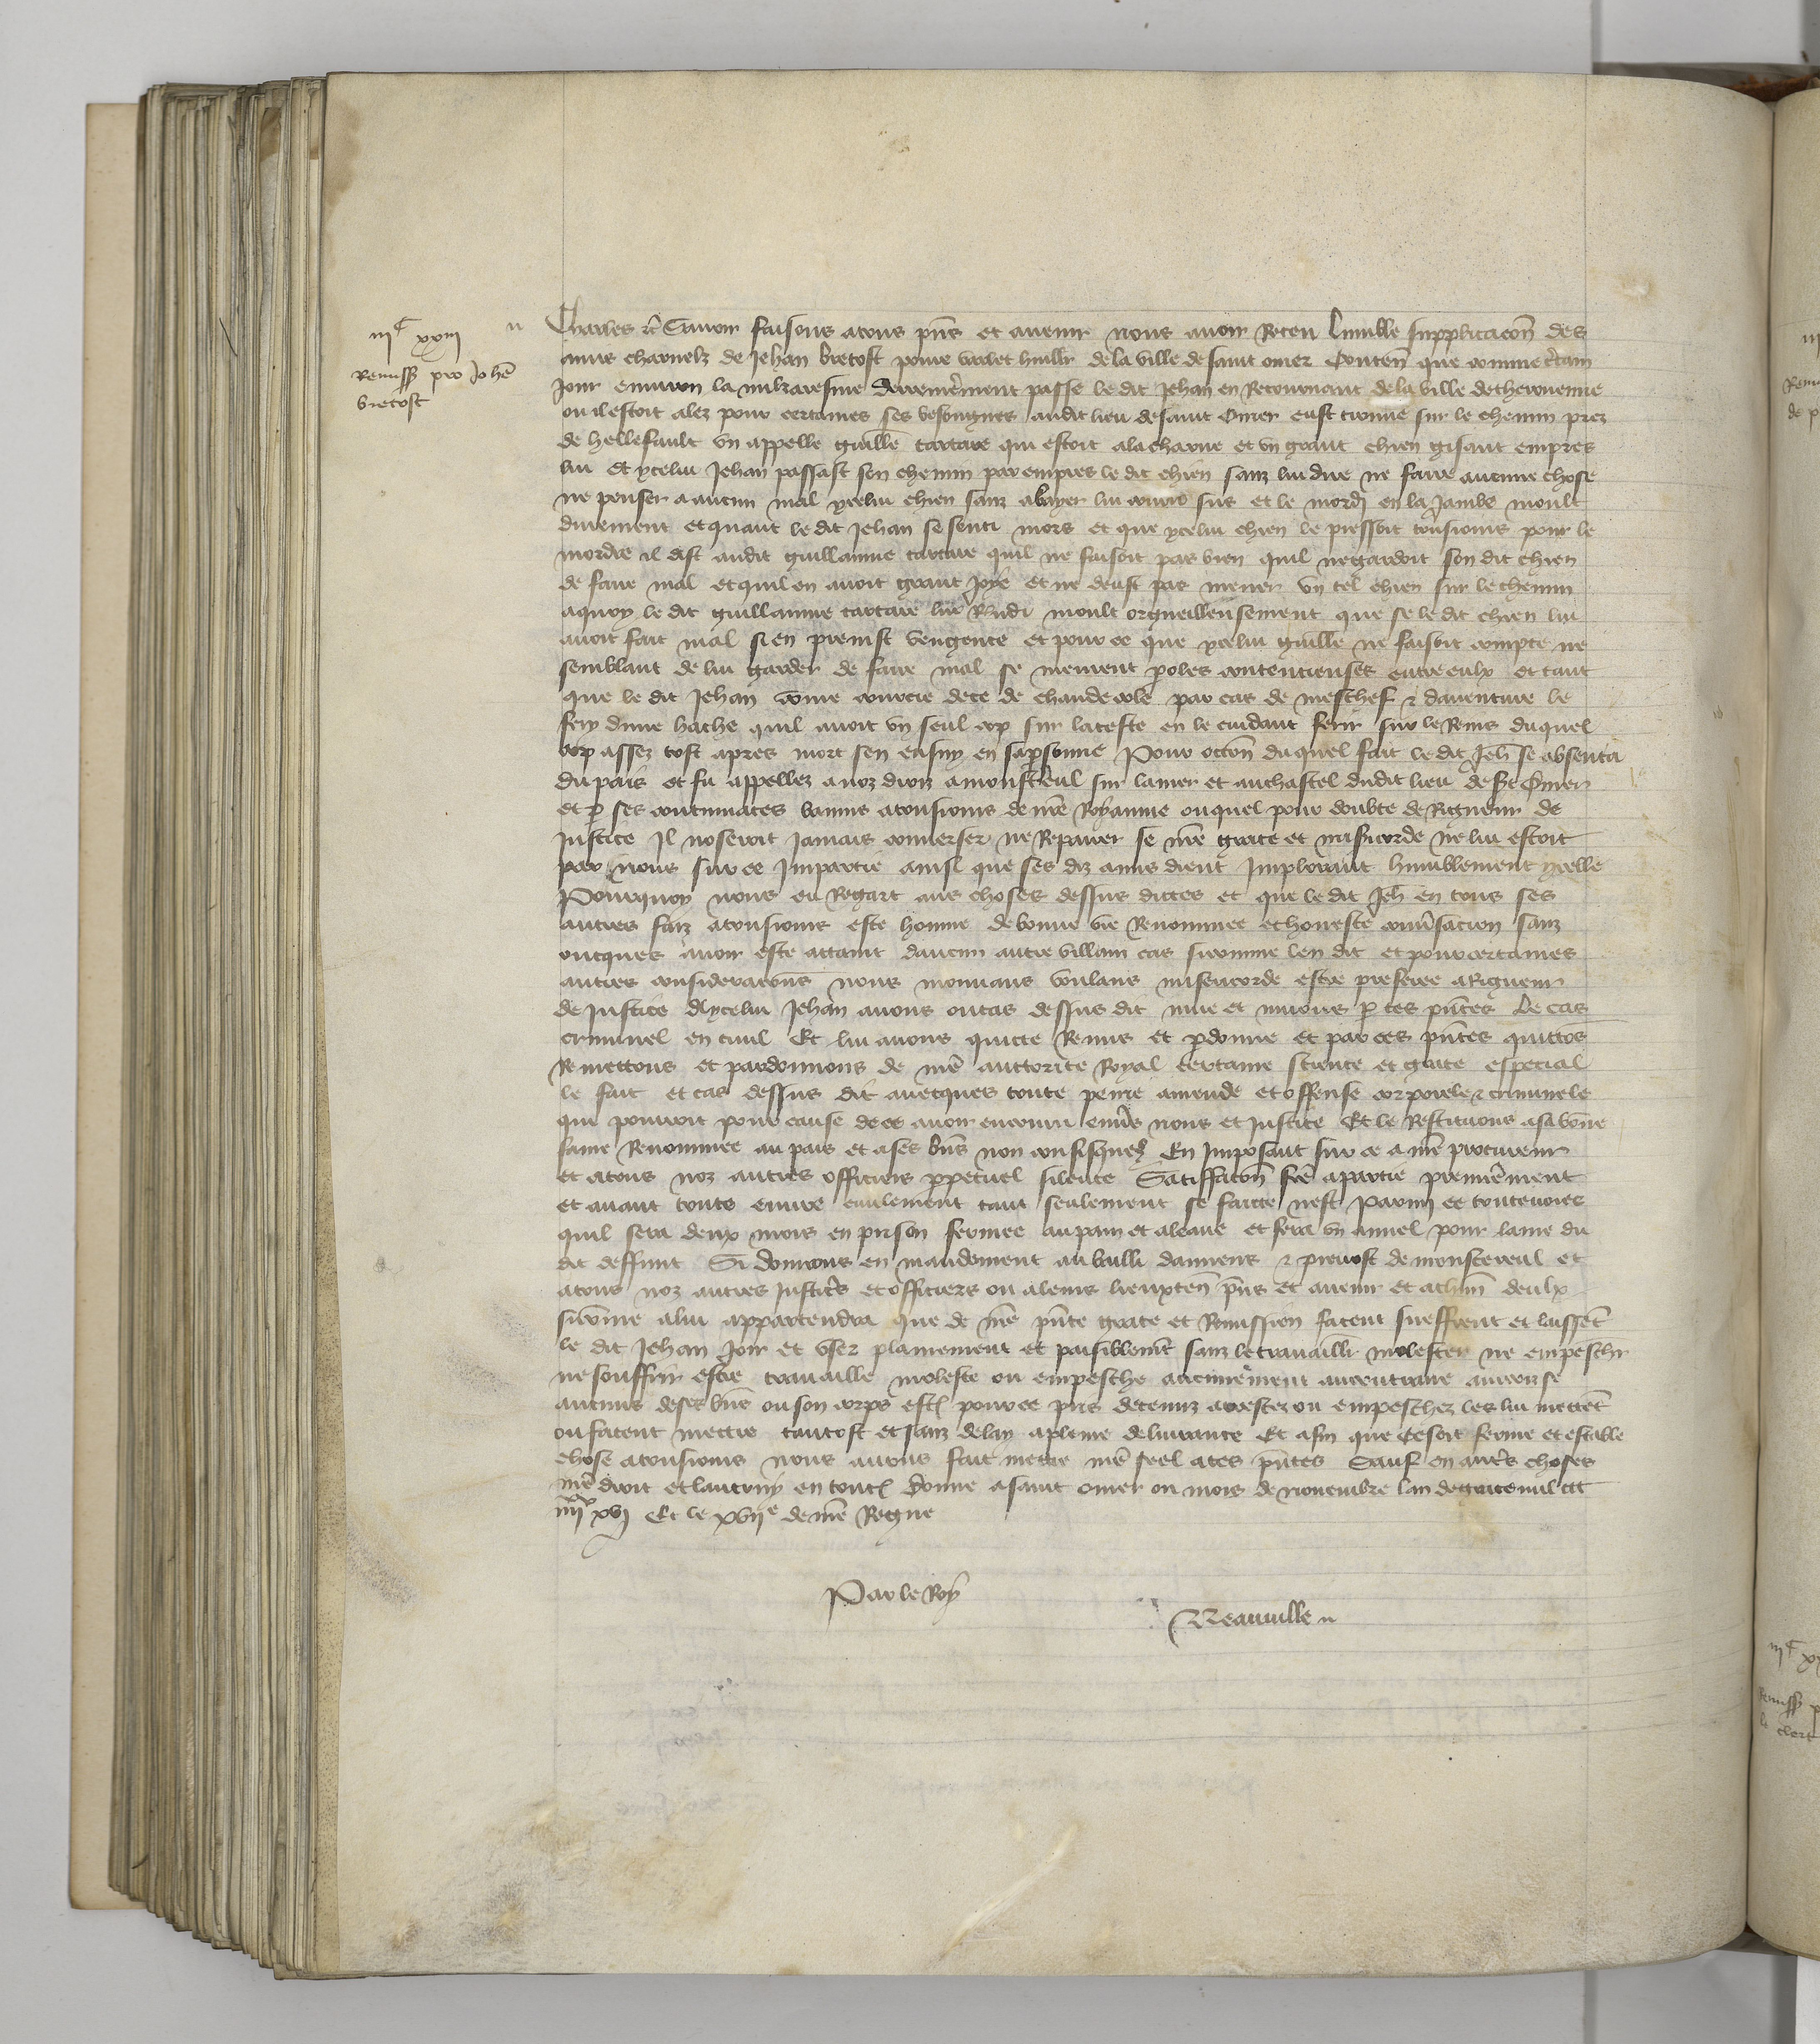 iiiᶜ xxiii
Remiss pro Joh̄e
bretost
Charles ⁊c̄ Savoir faisons a tous p̄ns et avenir nous avoir Receu lumble supplicacion̄ des
amis charnelz de Jehan bretost povre varlet huillr̄ de la ville de saint omer Conten̄ que comme c̄tain
Jour environ la mikaresme derrenierement passe le dit Jehan en Retournant de la ville de therouenne
ou il estoit alez pour certaines ses besongnes audit lieu de saint Omer eust trouve sur le chemin prez
de hellefault un appelle guille cartare qui estoit a la charue et un grant chien gisant empres
lui et ycelui Jehan passast son chemin par empres le dit chien sanz lui dire ne faire aucune chose
ne penser a aucun mal ycelui chien sanz abayer lui couru sus et le mordi en la Jambe moult
durement et quant le dit Jehan se senti mors et que ycelui chien le pressoit tousiours pour le
mordre il dist audit guillaume cartare quil ne faisoit pas bien quil ne gardoit son dit chien
de faire mal et quil en avoit grant Joye et ne deust pas mener un tel chien sur le chemin
a quoy le dit guillaume cartare lui Rn̄di moult orgueilleusement que se le dit chien lui
avoit fait mal si en preinst vengence et pour ce que ycelui guille ne faisoit compte ne
semblant de lui garder de faire mal se meurent p̄oles contencieuses entre eulx et tant
que le dit Jehan com̄e courcie de ce de chaudecole par cas de meschef ⁊ daventure le
fery dune hache quil avoit un seul cop sur la teste en le cuidant ferir sur les Reins duquel
cop assez tost apres mort sen ensuy en sa p̄sonne Pour occōn duquel fait le dit Jeh̄ se absenta
du pais et fu appellez a noz droiz a monsteul sur la mer et au chastel dudit lieu de st̄ Omer
et p̄ ses contumaces bannis a tousiours de n̄re Royaume ouquel pour doubte de Rigueur de
Justice Il noseroit Jamais converser ne Repairer se n̄re grace et mis̄icorde ne lui estoit
par nous sur ce Impartie ainsi que ses diz amis dient Implorant humblement ycelle
Pourquoy nous eu Regart aus choses dessus dictes et que le dit Jeh̄ en tous ses
autres faiz a tousiours este homme de bonne vie Renommee et honeste conv̄sacion sanz
oncques avoir este attaint daucun autre villain cas si comme len dit et pour certaines
autres consideracōns nous mouvans voulans misericorde estre preferee a Rigueur
de Justice A ycelui Jehan avons ou cas dessus dit mue et muons p̄ ces p̄ntes le cas
criminel en civil Et lui avons quicte Remis et p̄donne et par ces p̄ntes quittos
Remettons et pardonnons de n̄re auctorite Royal certaine science et grace especial
le fait et cas dessus dit avecques toute peine amende et offense corporele ⁊ criminele
qui pourroit pour cause de ce avoir encouru env̄s nous et Justice Et le Restituons a sa bonne
fame Renommee au pais et a ses bn̄s non confisquez En Imposant sur ce a n̄re procureur
et a tous noz autres officiers p̄petuel silence Satiffacōn f̄re a partie premierement
et avant toute euvre civilement tant seulement se faicte nest Parmi ce toutevoies
quil sera deux mois en prison fermee au pain et a leaue et fera un anuel pour lame du
dit deffunt Si donnons en mandement au bailli damiens ⁊ prevost de monstereul et
a tous noz autres Justic̄s et officiers ou a leurs lieuxten̄ p̄ns et avenir et a ch̄un deulx
si com̄e a lui appartendra que de n̄re p̄nte grace et Remission facent sueffrent et laissent
le dit Jehan Joir et user plainement et paisiblemēt sanz le travaillr̄ molester ne empeschr̄
ne souffrir estre travaille moleste ou empesche aucunement au contraire aincois se
aucuns de ses bn̄s ou son corps est pour ce pris detenuz arrestez ou empeschez les lui mettēt
ou facent mettre tantost et sanz delay a pleine delivrance Et afin que ce soit ferme et estable
chose a tousiours nous avons fait mettre n̄re seel a ces p̄ntes Sauf en aut̄s choses
n̄re droit et lautruy en toutes Donne a saint omer ou mois de novembre lan de grace mil ccc
iiiixx xvj Et le xvijᵉ de n̄re Regne
Par le Roy
Neauville